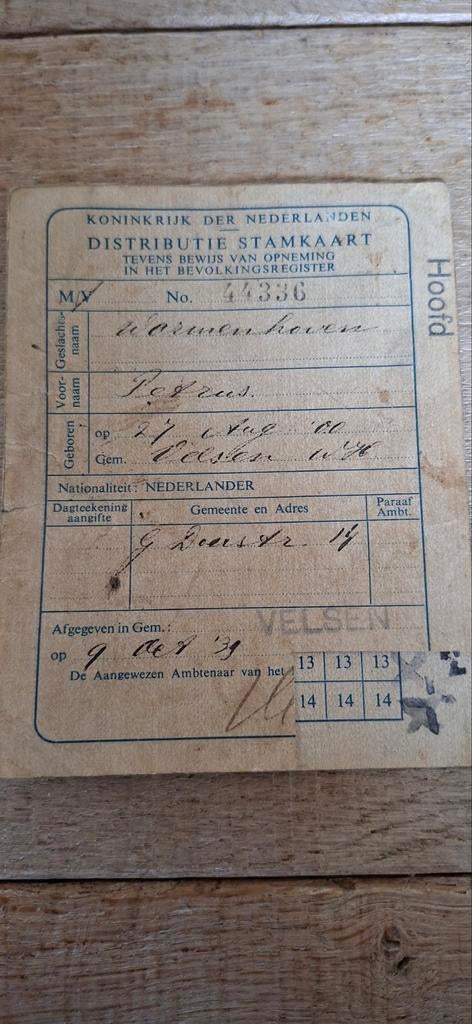 KONINKRIJK DER NEDERLANDEN
DISTRIBUTIE STAMKAART
TEVENS BEWIJS VAN OPNEMING
IN HET BEVOLKINGSREGISTER
Hoofd
M/V No. 44336
Geslachtsnaam Warmenhoven
Voornaam Petrus.
Geboren op 27 Aug '00
Gem. Velsen NH
Nationaliteit: NEDERLANDER
Dagteekening aangifte Gemeente en Adres Paraaf Ambt.
G 14
Afgegeven in Gem.: VELSEN
op 9 Oct '39
De Aangewezen Ambtenaar van het
13 13 13
14 14 14